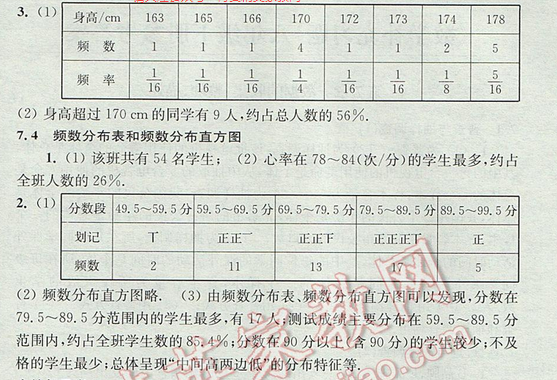 3. (1) 身高/cm 163 165 166 170 172 173 174 178
频数 1 1 1 4 1 1 2 5
频率 1/16 1/16 1/16 1/4 1/16 1/16 1/8 5/16
(2) 身高超过 170 cm 的同学有 9 人，约占总人数的 56%.
7.4 频数分布表和频数分布直方图
1. (1) 该班共有 54 名学生； (2) 心率在 78～84(次/分)的学生最多，约占
全班人数的 26%.
2. (1) 分数段 49.5～59.5 分 59.5～69.5 分 69.5～79.5 分 79.5～89.5 分 89.5～99.5 分
划记 丅 正正一 正正下 正正正丅 正
频数 2 11 13 17 5
(2) 频数分布直方图略. (3) 由频数分布表、频数分布直方图可以发现，分数在
79.5～89.5 分范围内的学生最多，有 17 人；测试成绩主要分布在 59.5～89.5 分
范围内，约占全班学生数的 85.4%；分数在 90 分以上(含 90 分)的学生较少；不及
格的学生最少；总体呈现“中间高两边低”的分布特征等.